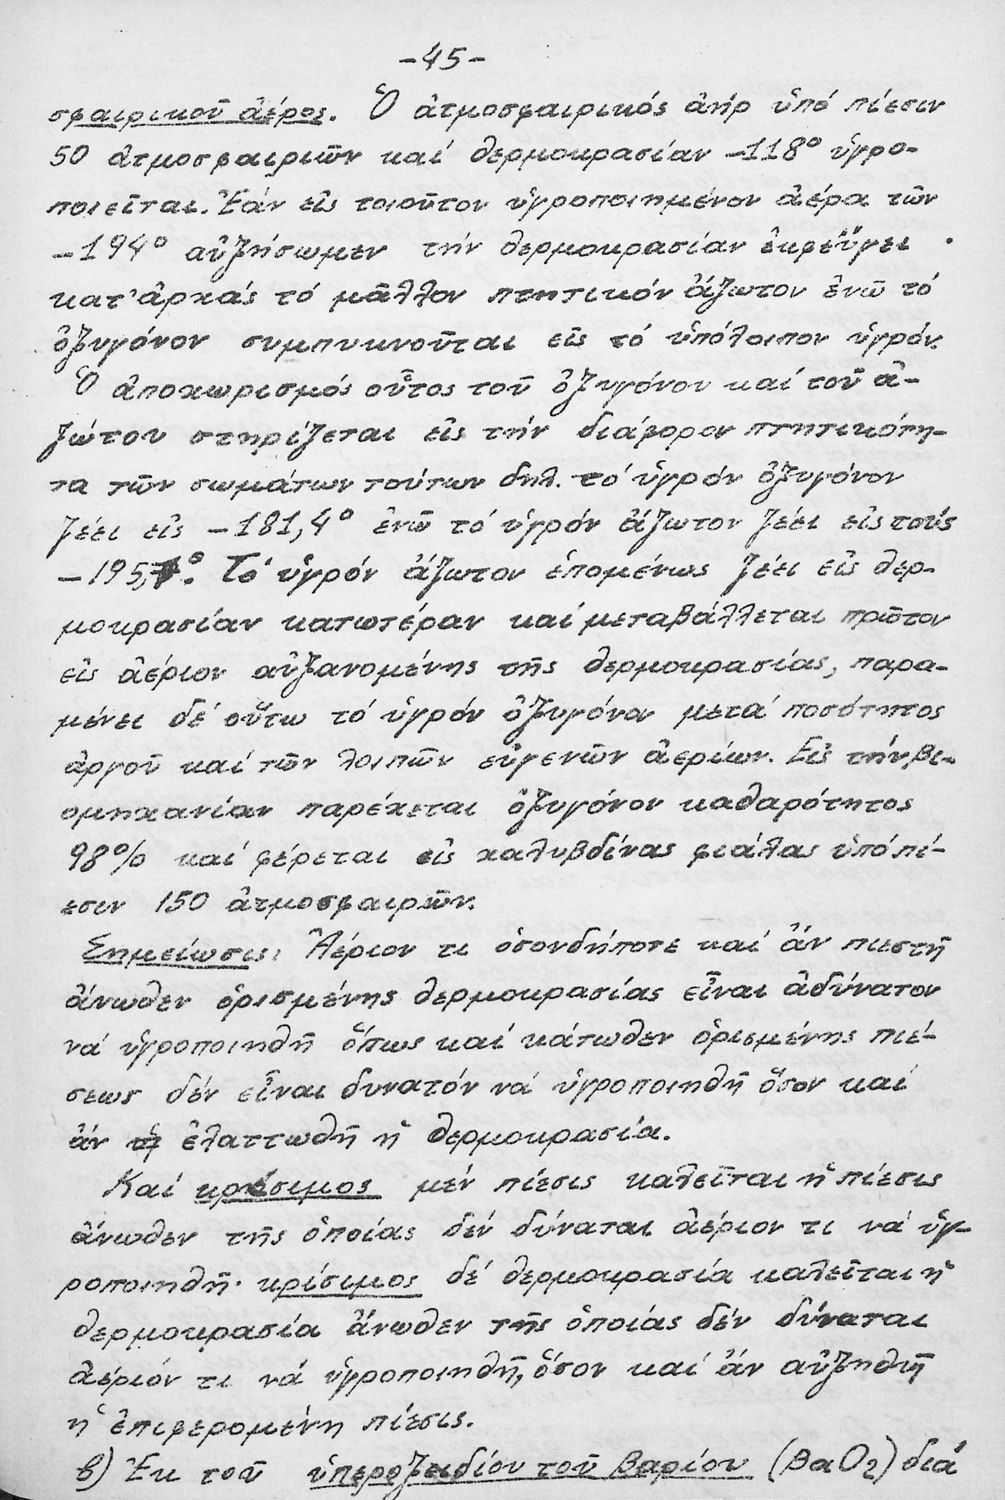 -45-
σφαιρικοῦ ἀέρος. Ὁ ἀτμοσφαιρικός ἀήρ ὑπό πίεσιν
50 ἀτμοσφαιρῶν καί θερμοκρασίαν -118° ὑγρο-
ποιεῖται. Ἐάν εἰς τοιοῦτον ὑγροποιημένον ἀέρα τῶν
-194° αὐξήσωμεν τήν θερμοκρασίαν ἐκφεύγει
κατ' ἀρχάς τό μᾶλλον πτητικόν ἄζωτον ἐνῶ τό
ὀξυγόνον συμπυκνοῦται εἰς τό ὑπόλοιπον ὑγρόν.
Ὁ ἀποχωρισμός οὗτος τοῦ ὀξυγόνου καί τοῦ ἀ-
ζώτου στηρίζεται εἰς τήν διάφορον πτητικότη-
τα τῶν σωμάτων τούτων δηλ. τό ὑγρόν ὀξυγόνον
ζέει εἰς -181,4° ἐνῶ τό ὑγρόν ἄζωτον ζέει εἰς τούς
-195,7°. Τό ὑγρόν ἄζωτον ἑπομένως ζέει εἰς θερ-
μοκρασίαν κατωτέραν καί μεταβάλλεται πρῶτον
εἰς ἀέριον αὐξανομένης τῆς θερμοκρασίας, παρα-
μένει δέ οὕτω τό ὑγρόν ὀξυγόνον μετά ποσότητος
ἀργοῦ καί τῶν λοιπῶν εὐγενῶν ἀερίων. Εἰς τήν βι-
ομηχανίαν παρέχεται ὀξυγόνον καθαρότητος
98% καί φέρεται εἰς χαλυβδίνας φιάλας ὑπό πί-
εσιν 150 ἀτμοσφαιρῶν.
Σημείωσις: Ἀέριον τι ὁσονδήποτε καί ἄν πιεστῆ
ἄνωθεν ὁρισμένης θερμοκρασίας εἶναι ἀδύνατον
νά ὑγροποιηθῆ ὅπως καί κάτωθεν ὁρισμένης πιέ-
σεως δέν εἶναι δυνατόν νά ὑγροποιηθῆ ὅσον καί
ἄν ἐλαττωθῆ ἡ θερμοκρασία.
Καί κρίσιμος μέν πίεσις καλεῖται ἡ πίεσις
ἄνωθεν τῆς ὁποίας δέν δύναται ἀέριον τι νά ὑγ-
ροποιηθῆ· κρίσιμος δέ θερμοκρασία καλεῖται ἡ
θερμοκρασία ἄνωθεν τῆς ὁποίας δέν δύναται
ἀέριόν τι νά ὑγροποιηθῆ, ὅσον καί ἄν αὐξηθῆ
ἡ ἐπιφερομένη πίεσις.
β) Ἐκ τοῦ ὑπεροξειδίου τοῦ βαρίου (BaO2) διά